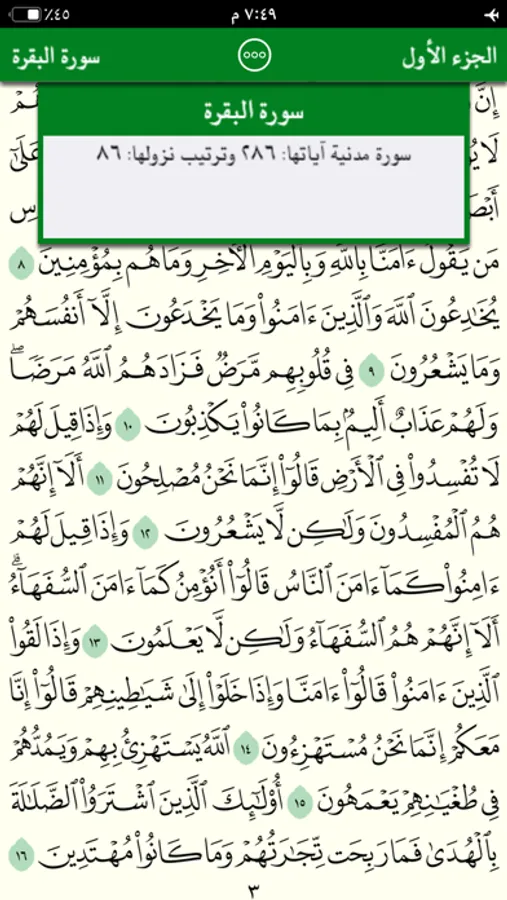 ٪٤٥ ٧:٤٩ م
الجزء الأول سورة البقرة
سورة البقرة
سورة مدنية آياتها: ٢٨٦ وترتيب نزولها: ٨٦
إِنَّ
لَا عَلَىٰٓ
مَن يَقُولُ ءَامَنَّا بِٱللَّهِ وَبِٱلْيَوْمِ ٱلْأَخِرِ وَمَا هُم بِمُؤْمِنِينَ ٨
يُخَٰدِعُونَ ٱللَّهَ وَٱلَّذِينَ ءَامَنُوا۟ وَمَا يَخْدَعُونَ إِلَّآ أَنفُسَهُمْ
وَمَا يَشْعُرُونَ ٩ فِى قُلُوبِهِم مَّرَضٌ فَزَادَهُمُ ٱللَّهُ مَرَضًا ۖ
وَلَهُمْ عَذَابٌ أَلِيمٌۢ بِمَا كَانُوا۟ يَكْذِبُونَ ١٠ وَإِذَا قِيلَ لَهُمْ
لَا تُفْسِدُوا۟ فِى ٱلْأَرْضِ قَالُوٓا۟ إِنَّمَا نَحْنُ مُصْلِحُونَ ١١ أَلَآ إِنَّهُمْ
هُمُ ٱلْمُفْسِدُونَ وَلَٰكِن لَّا يَشْعُرُونَ ١٢ وَإِذَا قِيلَ لَهُمْ
ءَامِنُوا۟ كَمَآ ءَامَنَ ٱلنَّاسُ قَالُوٓا۟ أَنُؤْمِنُ كَمَآ ءَامَنَ ٱلسُّفَهَآءُ ۗ
أَلَآ إِنَّهُمْ هُمُ ٱلسُّفَهَآءُ وَلَٰكِن لَّا يَعْلَمُونَ ١٣ وَإِذَا لَقُوا۟
ٱلَّذِينَ ءَامَنُوا۟ قَالُوٓا۟ ءَامَنَّا وَإِذَا خَلَوْا۟ إِلَىٰ شَيَٰطِينِهِمْ قَالُوٓا۟ إِنَّا
مَعَكُمْ إِنَّمَا نَحْنُ مُسْتَهْزِءُونَ ١٤ ٱللَّهُ يَسْتَهْزِئُ بِهِمْ وَيَمُدُّهُمْ
فِى طُغْيَٰنِهِمْ يَعْمَهُونَ ١٥ أُو۟لَٰٓئِكَ ٱلَّذِينَ ٱشْتَرَوُا۟ ٱلضَّلَٰلَةَ
بِٱلْهُدَىٰ فَمَا رَبِحَت تِّجَٰرَتُهُمْ وَمَا كَانُوا۟ مُهْتَدِينَ ١٦
٣